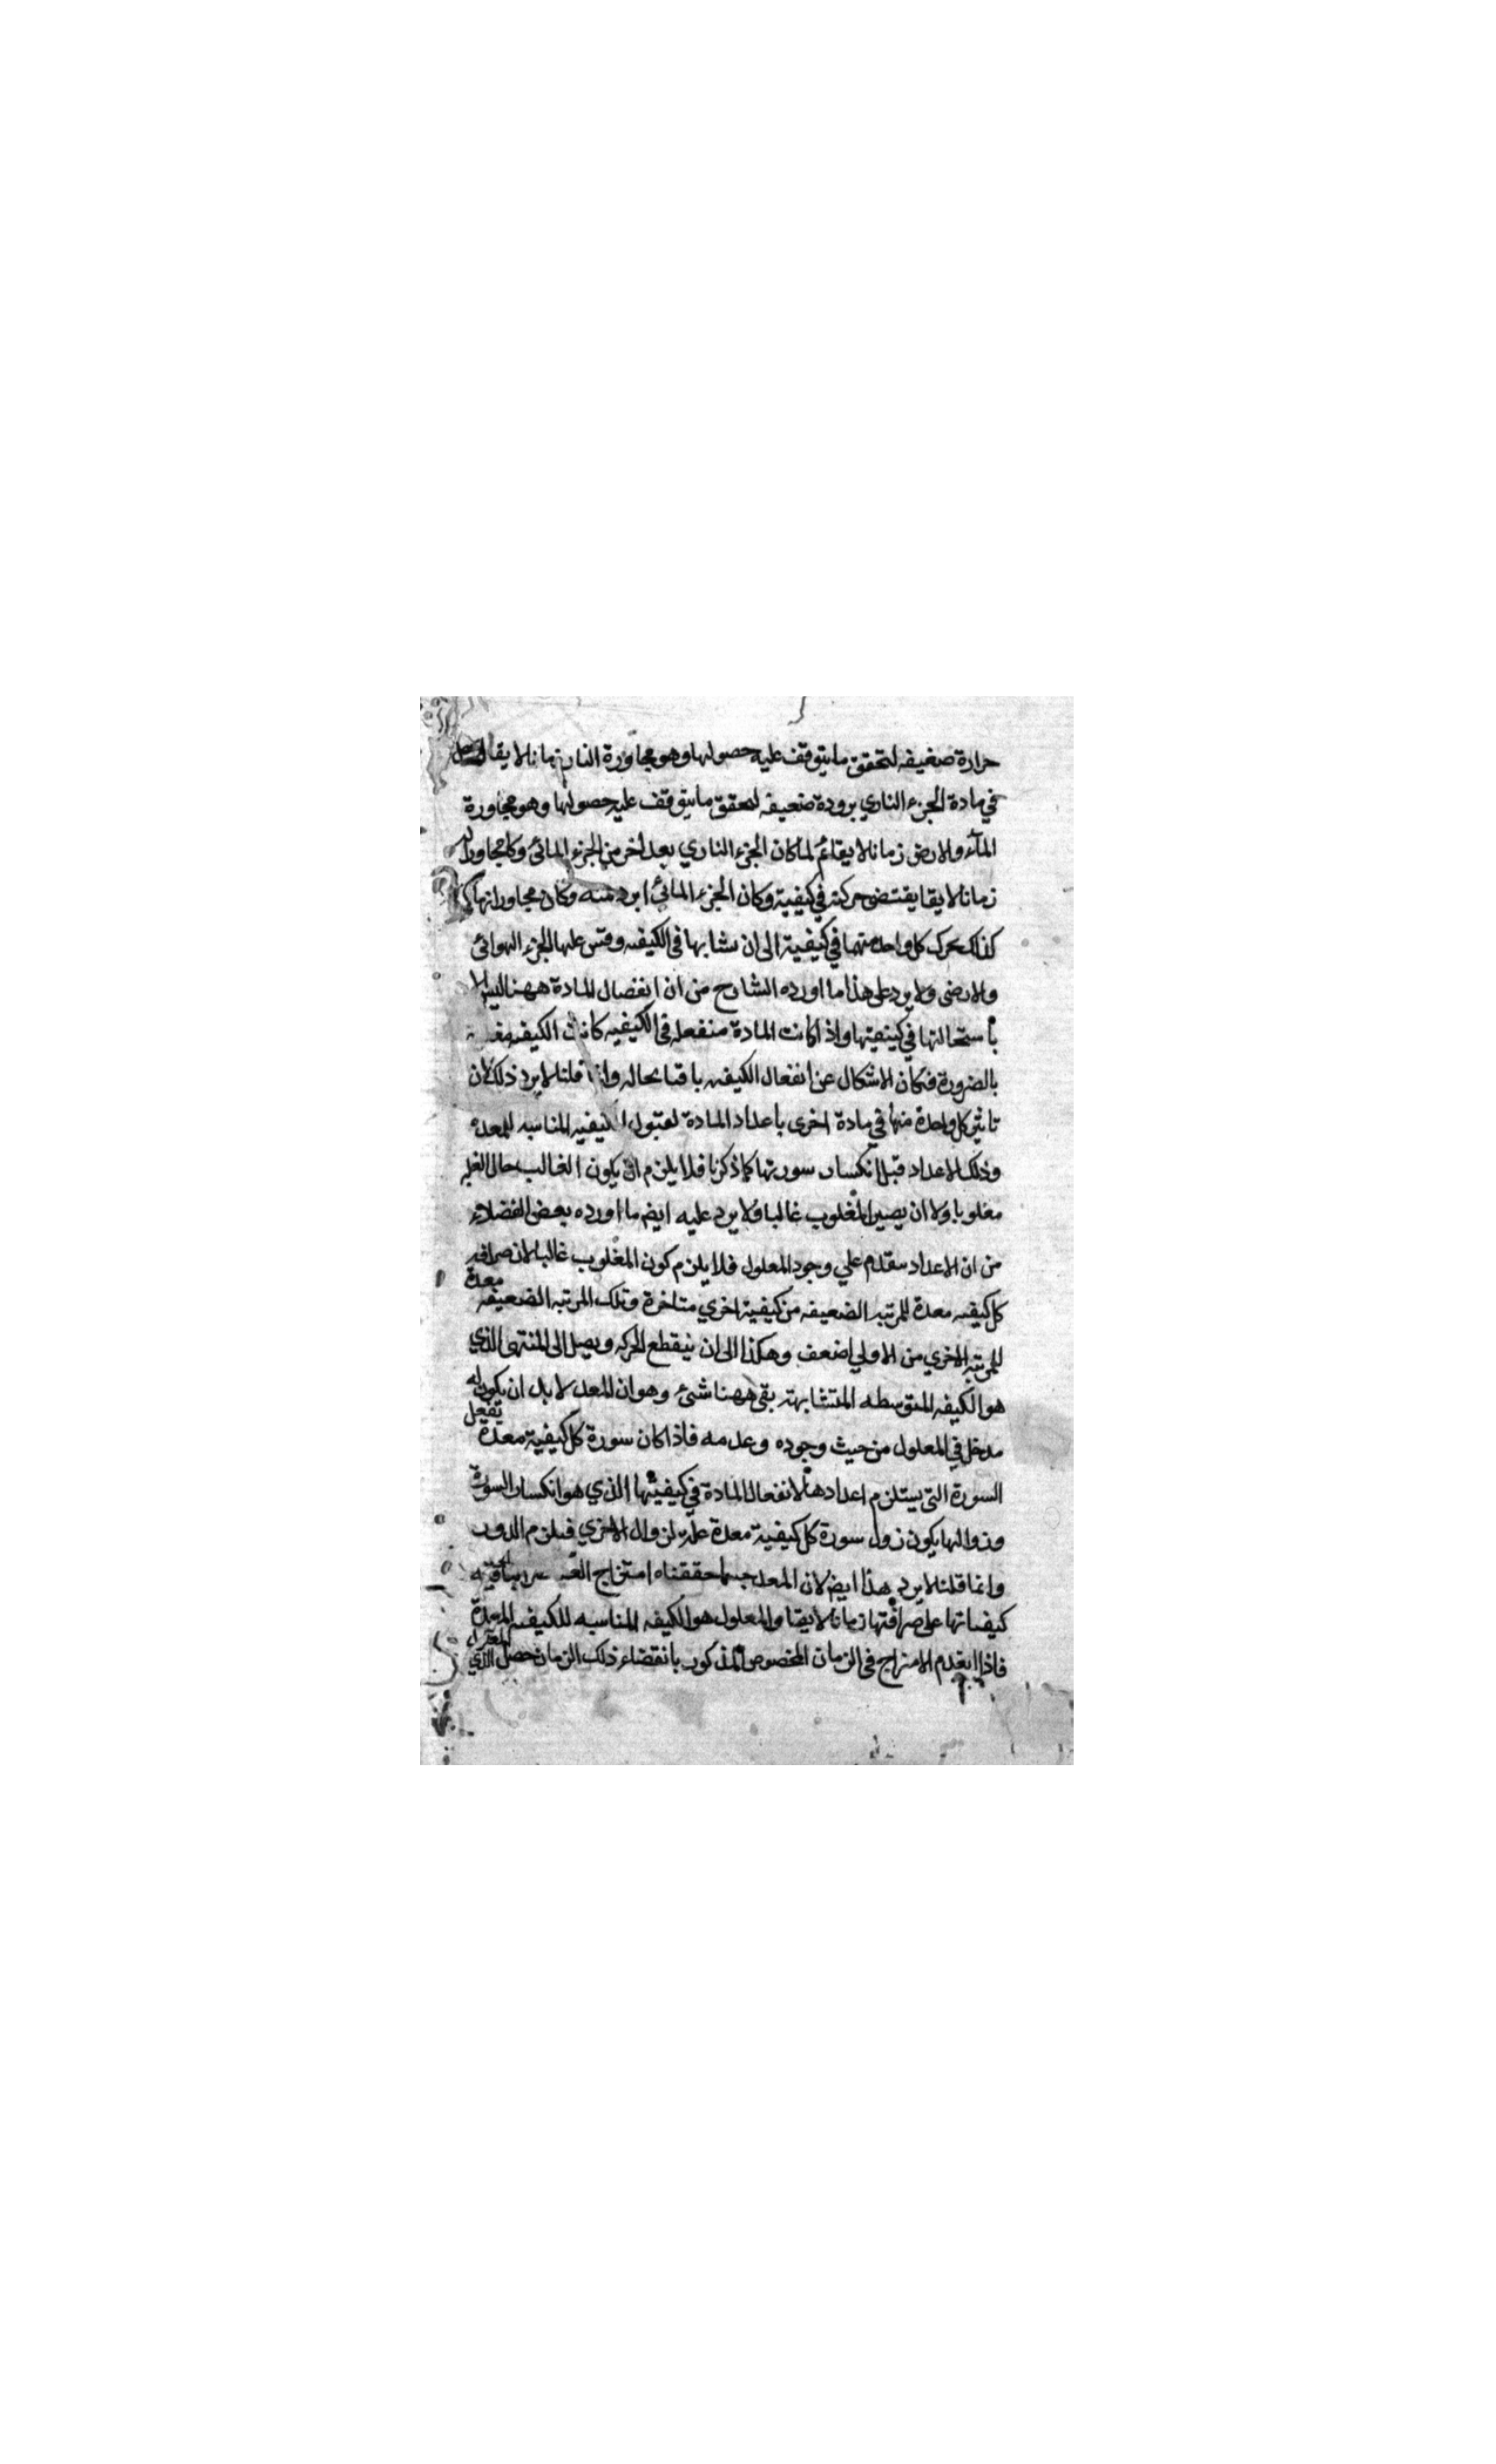 حرارة ضعيفه لتحقق ما يتوقف عليه حصولها وهو مجاورة النار زمانا لايقا
في مادة الجزء الناري برودة ضعيفه لتحقق ما يتوقف عليه حصولها وهو مجاورة
المآء والارض زمانا لايقا ثم لما كان الجزء الناري بعد اخر من الجزء المائي وكا مجاورا له
زمانا لايقا يقتضى حركته في كيفية وكان الجزء المائي ابرد منه وكان مجاورا
كذلك تحرك كل واحد منهما في كيفية الى ان تشابها فى الكيفيه وقس عليها الجزء الهوائي
والارضى ولا يرد على هذا ما اورده الشارح من ان انفصال المادة ههنا ليس الا
بأستحالتها في كيفيتها واذا كانت المادة منفعله فى الكيفيه كانت الكيفيه
بالضرورة فكان الاشكال عن انفعال الكيفيه باقيا بحاله وانما قلنا لا يرد ذلك لان
تاثير كل واحدة منها في مادة اخرى باعداد المادة لقبول الكيفيه المناسبه للمعده
وذلك الاعداد قبل انكسار سورتها كما ذكرنا فلا يلزم ان يكون الغالب حال الغلبه
مغلوبا ولا ان يصير المغلوب غالبا ولا يرد عليه ايضم ما اورده بعض الفضلاء
من ان الاعداد متقدم علي وجود المعلول فلا يلزم كون المغلوب غالبا لان صرافه
كل كيفيه معدة للمرتبه الضعيفه من كيفية اخري متاخرة وتلك المرتبه الضعيفه معدة
للمرتبه الاخري من الاولي اضعف وهكذا الى ان ينقطع الحركه ويصل الى المنتهى الذي
هو الكيفيه المتوسطه المتشابهة بقى ههنا شئ وهو ان المعد لا بد ان يكون له
مدخل في المعلول من حيث وجوده وعدمه فاذا كان سورة كل كيفية معدة تفعل
السورة التى يستلزم اعدادها لانفعال المادة في كيفيتها الذي هو انكسار السورة
وزوالها يكون زول سورة كل كيفية معدة علة لزوال الاخري فيلزم الدور
وانما قلنا لا يرد هذا ايضم لان المعد حسبما حققناه امتزاج
كيفياتها على صرافتها زمانا لايقا والمعلول هو الكيفيه المناسبه للكيفيه المعدة
فاذا انعدم الامتزاج فى الزمان المخصوص المذكور بانقضاء ذلك الزمان حصل الذي